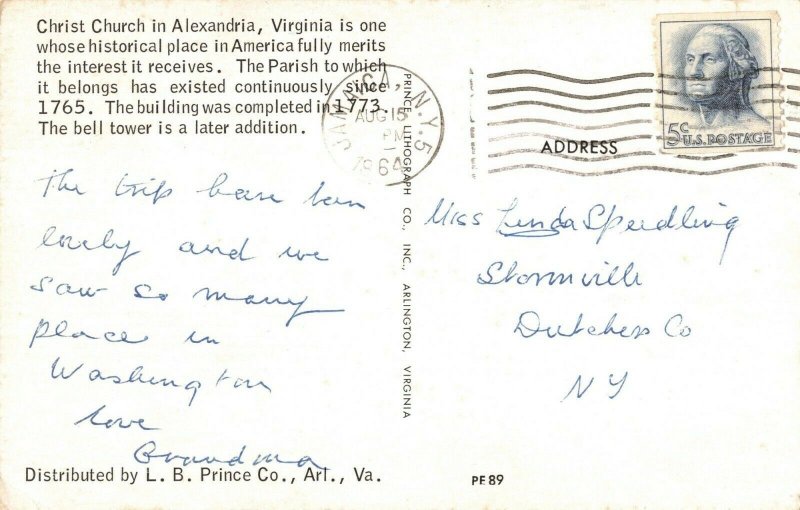 Christ Church in Alexandria, Virginia is one
whose historical place in America fully merits
the interest it receives. The Parish to which
it belongs has existed continuously since
1765. The building was completed in 1773.
The bell tower is a later addition.
JAMAICA, N.Y. 5
AUG 15
PM
1964
5c U.S. POSTAGE
ADDRESS
The trip have been
lovely and we
saw so many
place in
Washington
love
Grandma
PRINCE LITHOGRAPH CO., INC., ARLINGTON, VIRGINIA
Miss Linda Spedling
Stormville
Dutchess Co
NY
Distributed by L. B. Prince Co., Arl., Va.
PE89